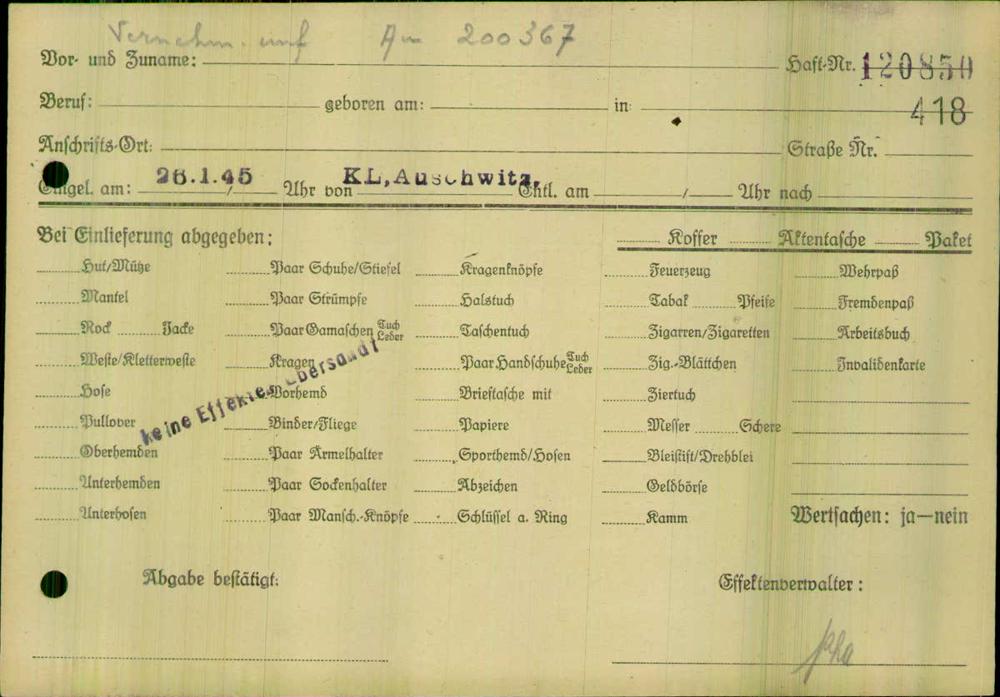 Vernehm. Au 200367
Vor- und Zuname: Haft-Nr. 120850
Beruf: geboren am: in: 418
Anschrifts-Ort: Straße Nr.
Eingel. am: 26.1.45 Uhr von KL, Auschwitz, Entl. am / Uhr nach
Bei Einlieferung abgegeben: Koffer Aktentasche Paket
Hut/Mütze Paar Schuhe/Stiefel Kragenknöpfe Feuerzeug Wehrpaß
Mantel Paar Strümpfe Halstuch Tabak Pfeife Fremdenpaß
Rock Jacke Paar Gamaschen Tuch Leder Taschentuch Zigarren/Zigaretten Arbeitsbuch
Weste/Kletterweste Kragen Paar Handschuhe Tuch Leder Zig.-Blättchen Invalidenkarte
keine Effekten übersandt
Hose Vorhemd Brieftasche mit Ziertuch
Pullover Binder/Fliege Papiere Messer Schere
Oberhemden Paar Ärmelhalter Sporthemd/Hosen Bleistift/Drehblei
Unterhemden Paar Sockenhalter Abzeichen Geldbörse
Unterhosen Paar Mansch.-Knöpfe Schlüssel a. Ring Kamm Wertsachen: ja—nein
Abgabe bestätigt: Effektenverwalter: